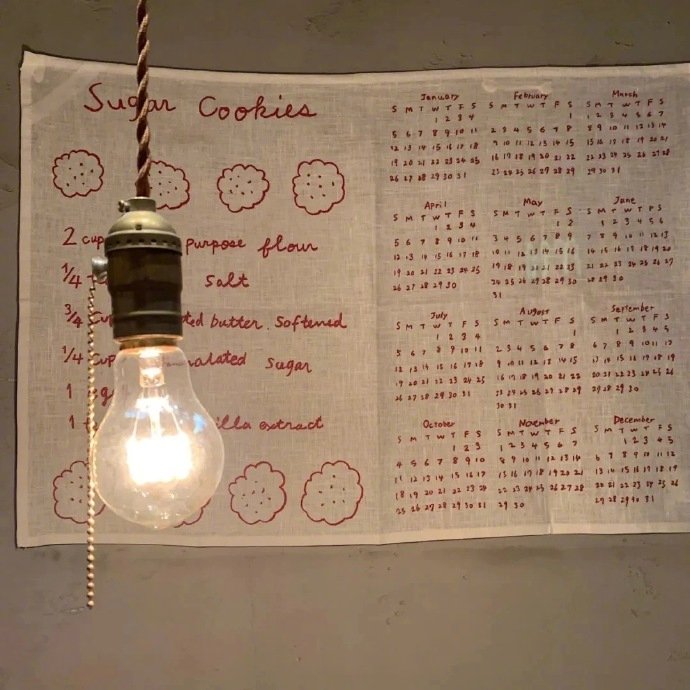 Sugar Cookies
2 cup purpose flour
1/4 Salt
3/4 butter, Softened
1/4 cup sugar
1
1 extract
January
S M T W T F S
1 2 3 4
5 6 7 8 9 10 11
12 13 14 15 16 17 18
19 20 21 22 23 24 25
26 27 28 29 30 31
February
S M T W T F S
1
2 3 4 5 6 7 8
9 10 11 12 13 14 15
16 17 18 19 20 21 22
23 24 25 26 27 28 29
March
S M T W T F S
1 2 3 4 5 6 7
8 9 10 11 12 13 14
15 16 17 18 19 20 21
22 23 24 25 26 27 28
29 30 31
April
S M T W T F S
1 2 3 4
5 6 7 8 9 10 11
12 13 14 15 16 17 18
19 20 21 22 23 24 25
26 27 28 29 30
May
S M T W T F S
1 2
3 4 5 6 7 8 9
10 11 12 13 14 15 16
17 18 19 20 21 22 23
24 25 26 27 28 29 30
31
June
S M T W T F S
1 2 3 4 5 6
7 8 9 10 11 12 13
14 15 16 17 18 19 20
21 22 23 24 25 26 27
28 29 30
July
S M T W T F S
1 2 3 4
5 6 7 8 9 10 11
12 13 14 15 16 17 18
19 20 21 22 23 24 25
26 27 28 29 30 31
August
S M T W T F S
1
2 3 4 5 6 7 8
9 10 11 12 13 14 15
16 17 18 19 20 21 22
23 24 25 26 27 28 29
30 31
September
S M T W T F S
1 2 3 4 5
6 7 8 9 10 11 12
13 14 15 16 17 18 19
20 21 22 23 24 25 26
27 28 29 30
October
S M T W T F S
1 2 3
4 5 6 7 8 9 10
11 12 13 14 15 16 17
18 19 20 21 22 23 24
25 26 27 28 29 30 31
November
S M T W T F S
1 2 3 4 5 6 7
8 9 10 11 12 13 14
15 16 17 18 19 20 21
22 23 24 25 26 27 28
29 30
December
S M T W T F S
1 2 3 4 5
6 7 8 9 10 11 12
13 14 15 16 17 18 19
20 21 22 23 24 25 26
27 28 29 30 31